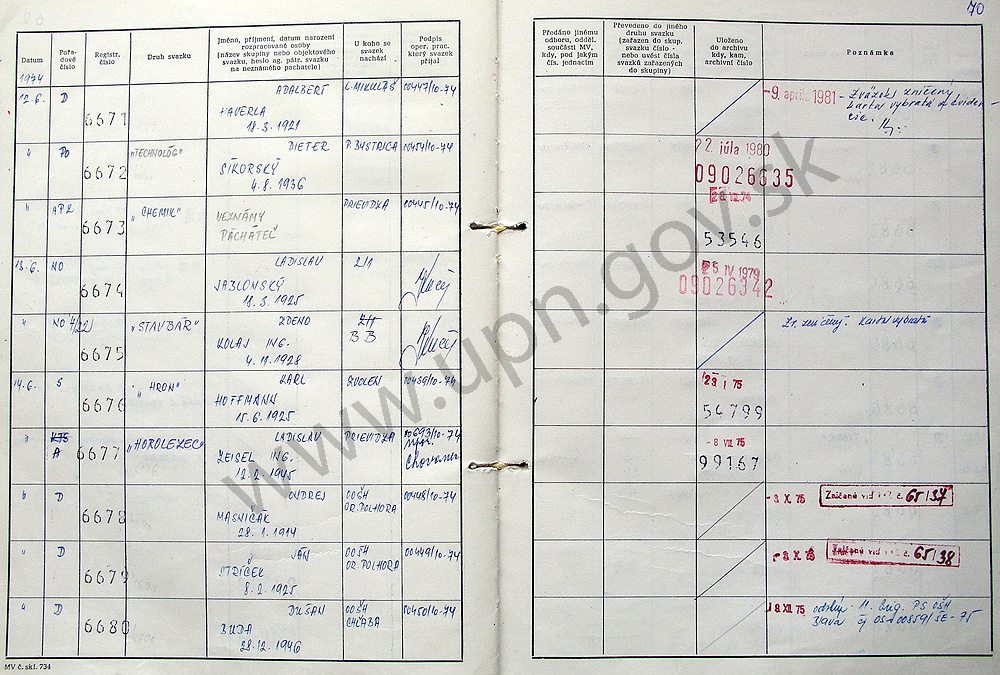 70
Datum
Pořa-
dové
číslo
Registr.
číslo
Druh svazku
Jméno, příjmení, datum narození
rozpracované osoby
(název skupiny nebo objektového
svazku, heslo ag. pátr. svazku
na neznámého pachatele)
U koho se
svazek
nachází
Podpis
oper. prac.
který svazek
přijal
Předáno jinému
odboru, odděl.
součásti MV,
kdy, pod jakým
čís. jednacím
Převedeno do jiného
druhu svazku
(zařazen do skup.
svazku číslo -
nebo uvést čísla
svazků zařazených
do skupiny)
Uloženo
do archivu
kdy, kam,
archivní číslo
Poznámka
1974
12.6. D 6671 ADALBERT L. MIKULÁŠ 00447/10-74
HAVERLA
18.3.1921
-9. apríla 1981 - Zväzok zničený
karta vybratá z eviden-
cie.
" PO 6672 "TECHNOLÓG" DIETER P. BYSTRICA 00454/10-74
SIKORSKÝ
4.8.1936
22 júla 1980
09026635
" 6673 "CHEMIK" NEZNÁMY PRIEVIDZA 00445/10-74
PÁCHATEĽ
53546
13.6. NO 6674 LADISLAV 2/1
JABLONSKÝ
18.3.1925
25 IV 1979
09026342
" NO 6675 "STAVBÁR" ZDENO
KOLAJ ING. BB
4.11.1928
Zv. zničený. Karta vybratá
14.6. S 6676 "HRON" KARL ZVOLEN 00459/10-74
HOFFMANN
15.6.1925
23 I 75
54799
" KTS 6677 "HOROLEZEC" LADISLAV PRIEVIDZA 00693/10-74
A ZEISEL ING. Chovanec
12.2.1945
-8 VII 75
99167
" D 6678 ONDREJ OOŠH 00448/10-74
MASNICÁK OR. POLHORA
28.1.1914
-3. X. 75 Zničené viď č. 65/37
" D 6679 JÁN OOŠH 00449/10-74
STRÍČEK OR. POLHORA
8.2.1925
-3 X 75 Zničené viď č. 65/38
" D 6680 DUŠAN OOŠH 00450/10-74
BUDA CHĽABA
28.12.1946
18. XII 75 odstúp. 11. bug. PS OŠH
Bl'ava čj OS-00859/SE-75
MV č. skl. 734
www.upn.gov.sk